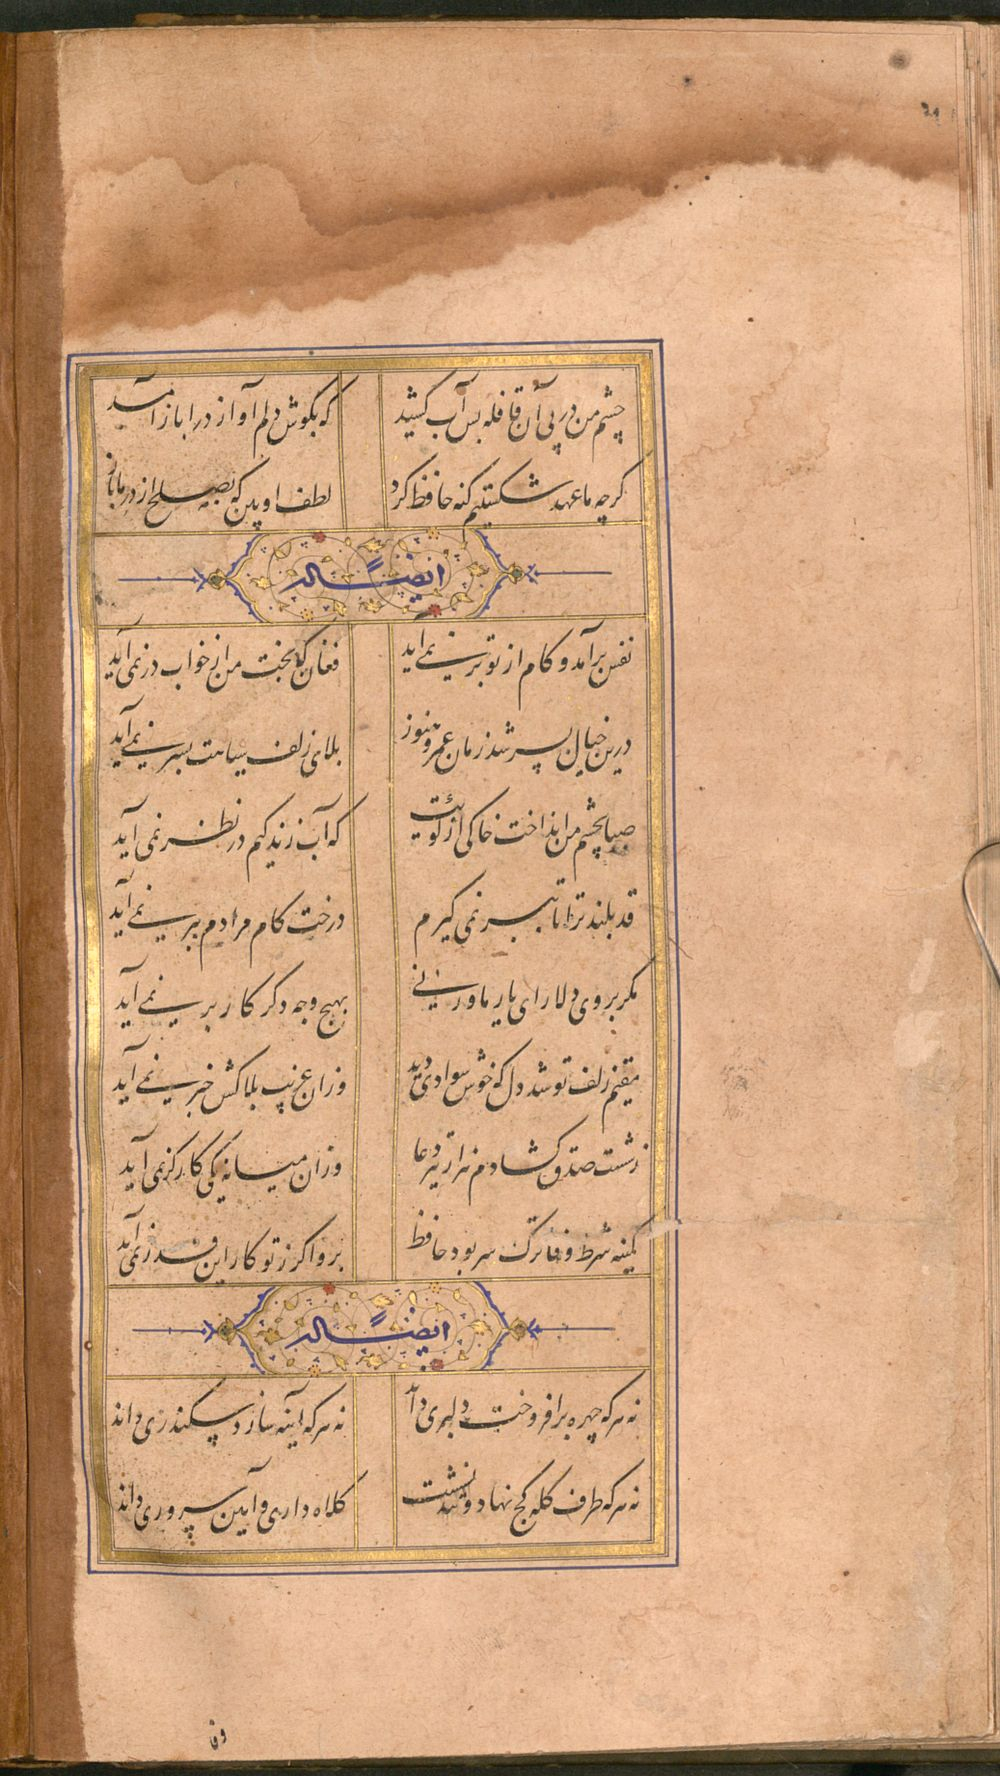 چشم من در پی آن قافله بس آب کشید که بگوش دلم آواز درا باز آمد
کرچه ما عهد شکستیم کنه حافظ کرد لطف او بین که بصلح از در ما باز
ایضاً له
نفس برآمد و کام از تو بر نمی آید فغان که بخت من از خواب در نمی آید
درین خیال بسر شد زمان عمر و هنوز بلای زلف سیاهت بسر نمی آید
صبا بچشم من انداخت خاکی از کویت که آب زندکیم در نظر نمی آید
قد بلند ترا تا ببر نمی کیرم درخت کام مرادم ببر نمی آید
مکر بروی دلارای یار ما ورنی بهیچ وجه دکر کار بر نمی آید
مقیم زلف تو شد دل که خوش سوادی دید وزان غریب بلاکش خبر نمی آید
ز شست صدق کشادم هزار تیر دعا وزان میانه یکی کارکر نمی آید
کمینه شرط وفا ترک سر بود حافظ برو اکر ز تو کار این قدر نمی آید
ایضاً له
نه هر که چهره برافروخت دلبری داند نه هر که آینه سازد سکندری داند
نه هر که طرف کله کج نهاد و تند نشست کلاه داری و آیین سروری داند
وفا